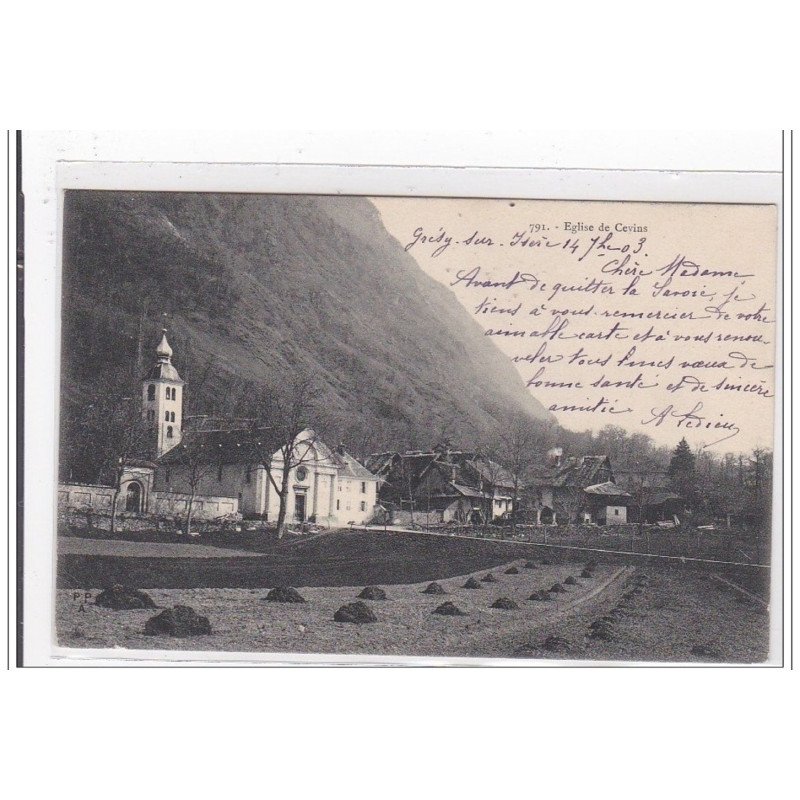 791. - Eglise de Cevins
Grésy-sur-Isère 14 7bre 03.
Chère Madame
Avant de quitter la Savoie, je
tiens à vous remercier de votre
aimable carte et à vous renou-
veler tous mes vœux de
bonne santé et de sincère
amitié
P P
A